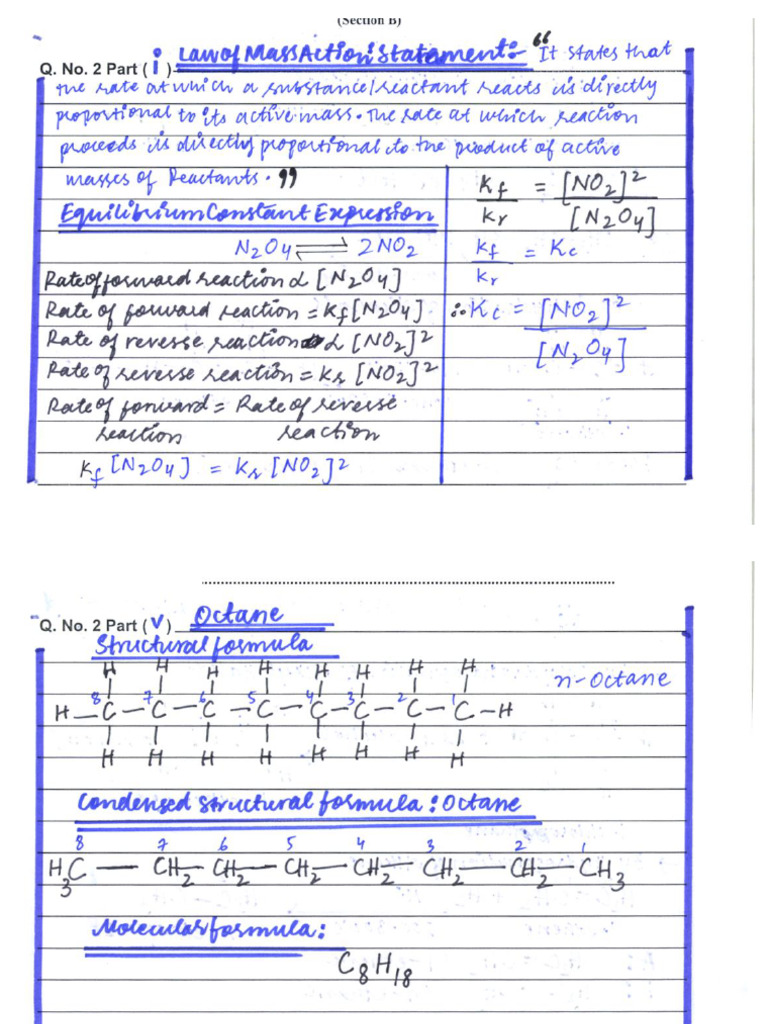 (Section B)
Q. No. 2 Part ( i ) Law of Mass Action: Statement:- “It states that
the rate at which a substance/reactant reacts is directly
proportional to its active mass. The rate at which reaction
proceeds is directly proportional to the product of active
masses of Reactants.”
Equilibrium Constant Expression
N₂O₄ ⇌ 2NO₂
Rate of forward reaction α [N₂O₄]
Rate of forward reaction = Kf[N₂O₄]
Rate of reverse reaction α [NO₂]²
Rate of reverse reaction = Kr [NO₂]²
Rate of forward = Rate of reverse
reaction reaction
Kf [N₂O₄] = Kr [NO₂]²
Kf = [NO₂]²
Kr [N₂O₄]
Kf = Kc
Kr
∴ Kc = [NO₂]²
[N₂O₄]
Q. No. 2 Part ( v ) Octane
Structural formula
H H H H H H H H
n-Octane
8 7 6 5 4 3 2 1
H—C—C—C—C—C—C—C—C—H
H H H H H H H H
Condensed structural formula: Octane
8 7 6 5 4 3 2 1
H₃C—CH₂—CH₂—CH₂—CH₂—CH₂—CH₂—CH₃
Molecular formula:
C₈H₁₈